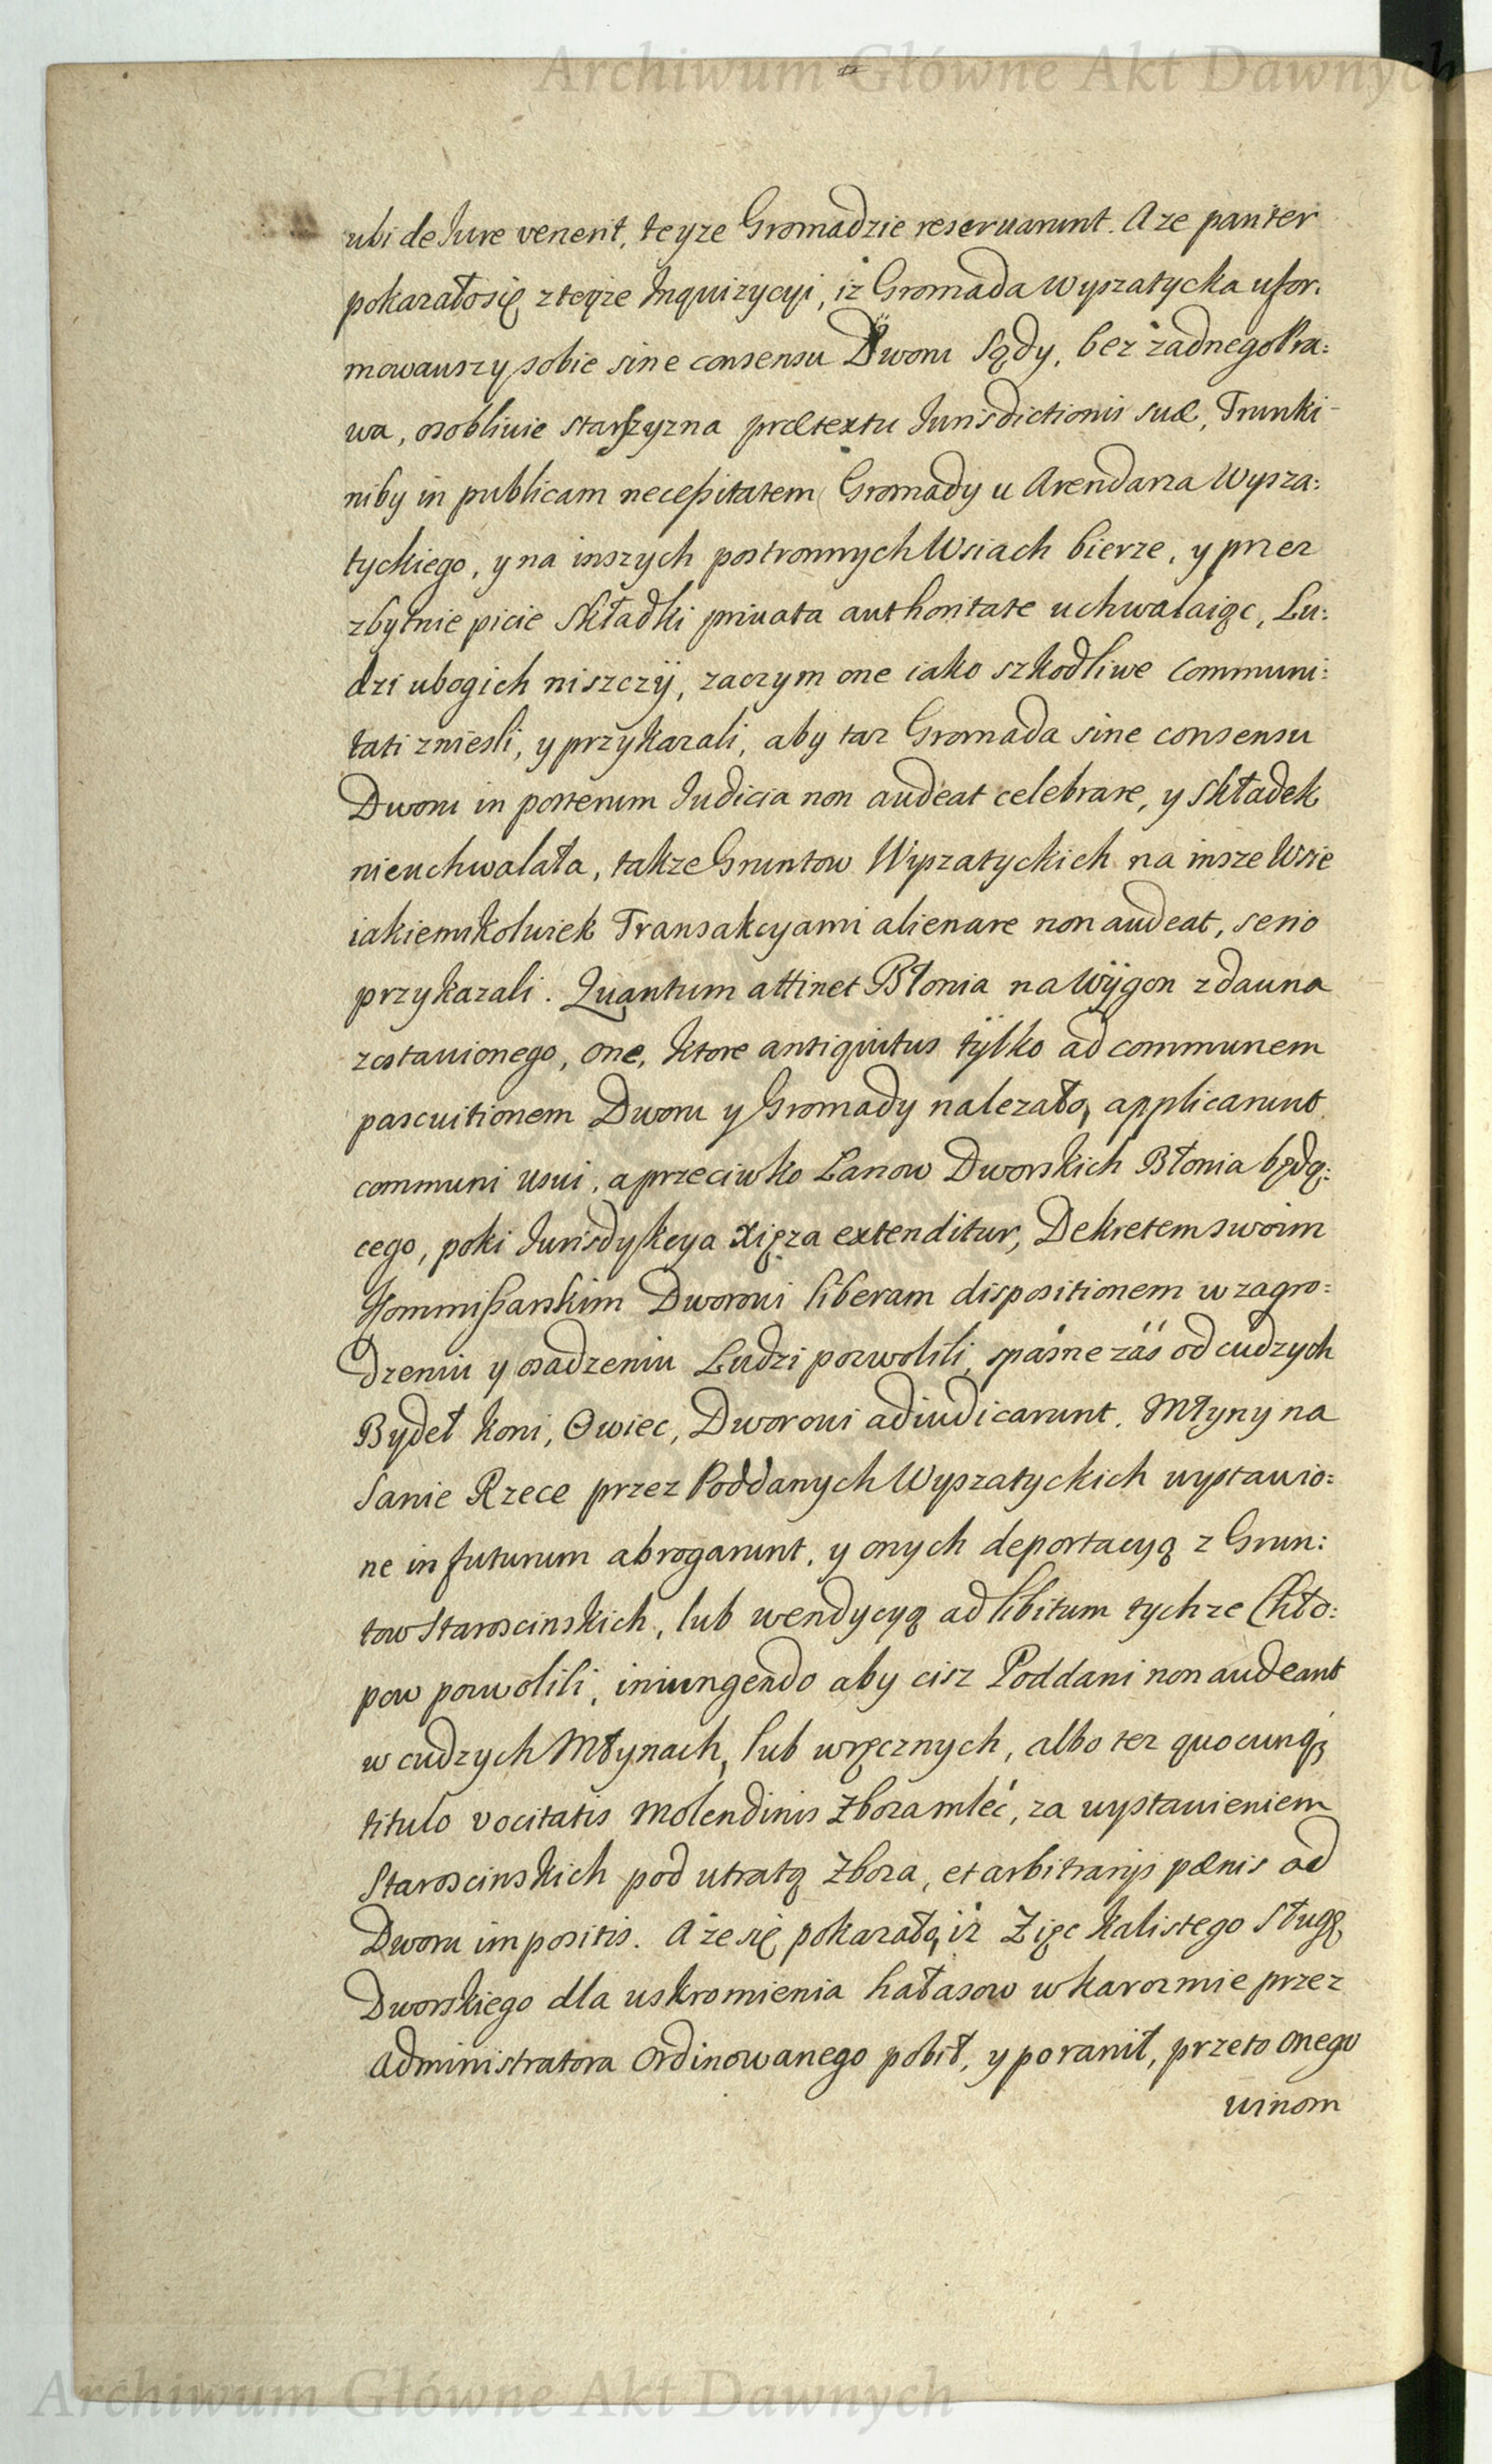 Archiwum Główne Akt Dawnych
ubi de Jure venerit, teyze Gromadzie reseruarunt. A ze pariter
pokazałosię z teyże Inquizycyi, iż Gromada Wyszatycka ufor:
mowawszy sobie sine consensu Dworu Sądy, bez żadnego Pra:
wa, osobliwie starszyzna prætextu Jurisdictionis suæ, Trunki
niby in publicam neceßitatem Gromady u Arendarza Wysza:
tyckiego, y na inszych postronnych Wsiach bierze, y przez
zbytnie picie Składki priuata authoritate uchwalaiąc, Lu:
dzi ubogich niszczÿ, zaczym one iako szkodliwe Communi:
tati znieśli, y przykazali, aby taz Gromada sine consensu
Dworu in posterum Judicia non audeat celebrare, y Składek
nieuchwalała, takze Gruntow Wyszatyckich na insze Wsie
iakiemikolwiek Transakcyami alienare non audeat, serio
przykazali. Quantum attinet Błonia na Wÿgon zdawna
zostawionego, one, ktore antiquitus tÿlko ad communem
pascuitionem Dworu y Gromady nalezało, applicarunt
communi usui, a przeciwko Łanow Dworskich Błonia będą:
cego, poki Jurisdykcya Xięza extenditur, Dekretem swoim
Kommißarskim Dworowi liberam dispositionem w zagro:
dzeniu y osadzeniu Ludzi pozwolili, spaśne záś od cudzych
Bydeł Koni, Owiec, Dworowi adiudicarunt. Młyny na
Sanie Rzece przez Poddanych Wyszatyckich wystawio:
ne in futurum abrogarunt, y onych deportacyą z Grun:
tow Staroscinskich, lub wendycyą ad libitum tychze Chło:
pow pozwolili, iniungendo aby cisz Poddani non audeant
w cudzych Młynach, lub wręcznych, albo tez quocunqꝫ
titulo vocitatis molendinis Zboza mleć, za wystawieniem
Staroscinskich pod utratą Zboza, et arbitrarijs pænis ad
Dworu impositis. A że się pokazało, iż Zięc Kalistego Sługę
Dworskiego dla uskromienia hałasow w karczmie przez
Administratora Ordinowanego pobił, y poranił, przeto onego
winom
Archiwum Główne Akt Dawnych